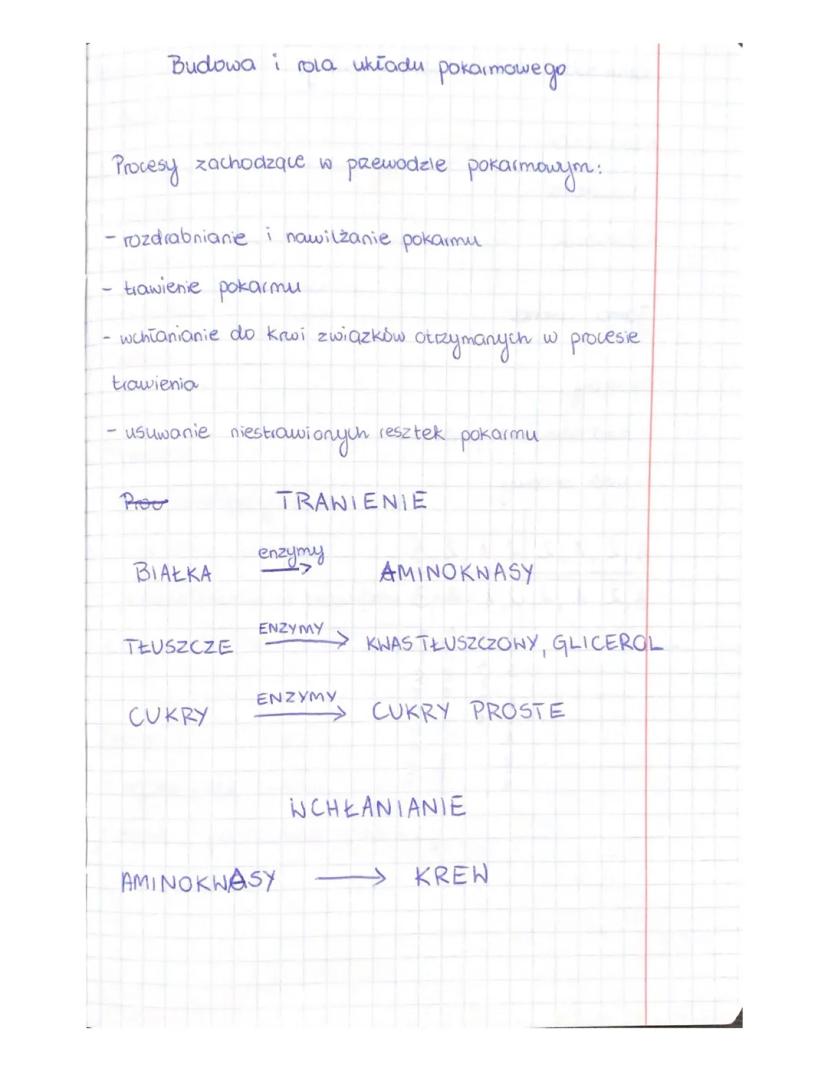 Budowa i rola układu pokarmowego
Procesy zachodzące w przewodzie pokarmowym:
- rozdrabnianie i nawilżanie pokarmu
- trawienie pokarmu
- wchłanianie do krwi związków otrzymanych w procesie
trawienia
- usuwanie niestrawionych resztek pokarmu
TRAWIENIE
BIAŁKA enzymy → AMINOKWASY
TŁUSZCZE ENZYMY → KWAS TŁUSZCZOWY, GLICEROL
CUKRY ENZYMY → CUKRY PROSTE
WCHŁANIANIE
AMINOKWASY → KREW